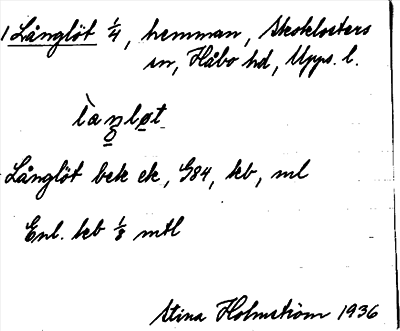 1 Långlöt 1/4, hemman, Skoklosters
sn, Håbo hd, Upps. l.
Långlöt bek ek, G84, kb, ml
Enl. kb 1/8 mtl
Stina Holmström 1936